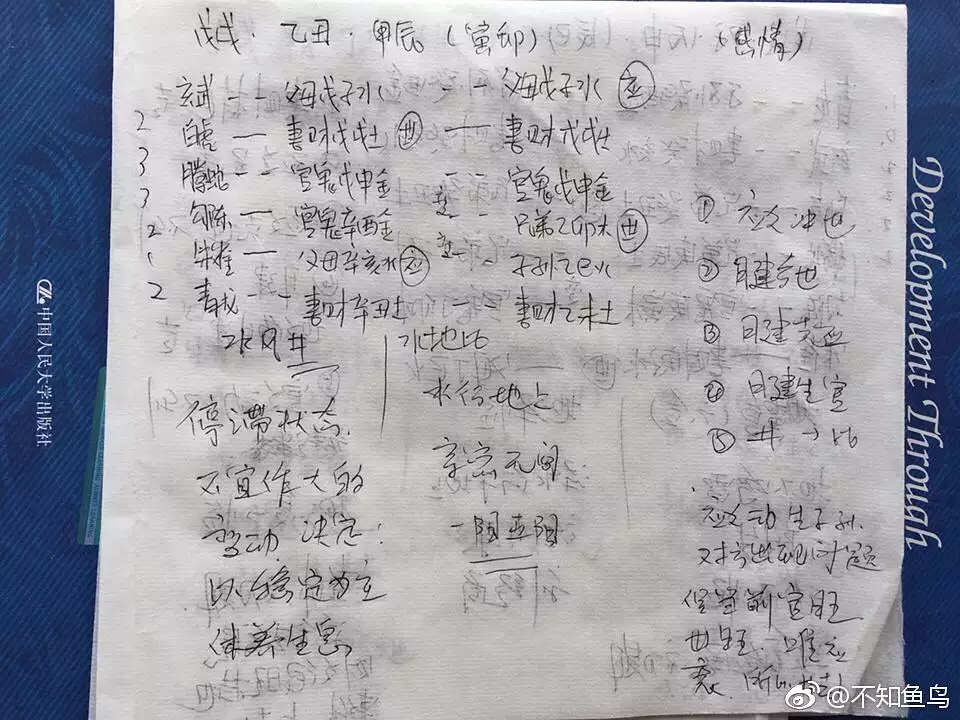 戊戌．乙丑．甲辰（寅卯）（感情）
玄武 -- 父母戊子水 -- 父母戊子水 应
2 白虎 — 妻财戊戌土 世 — 妻财戊戌土
3 腾蛇 -- 官鬼戊申金 -- 官鬼戊申金
3 勾陈 — 官鬼辛酉金 -- 兄弟乙卯木 世
2 朱雀 — 父母辛亥水 应 -- 子孙乙巳火
2 青龙 -- 妻财辛丑土 妻财乙未土
水风井
停滞状态．
不宜作大的
变动 决定：
以稳定为主
休养生息
水地比
水行地上
亲密无间
一阳五阴
① 应爻冲世
② 日建合世
③ 日建克应
④ 日建生官
⑤ 井→比
应爻动生子孙．
对方出现问题
官旺
世旺．唯应
衰．
中国人民大学出版社
Development Through
@不知鱼鸟